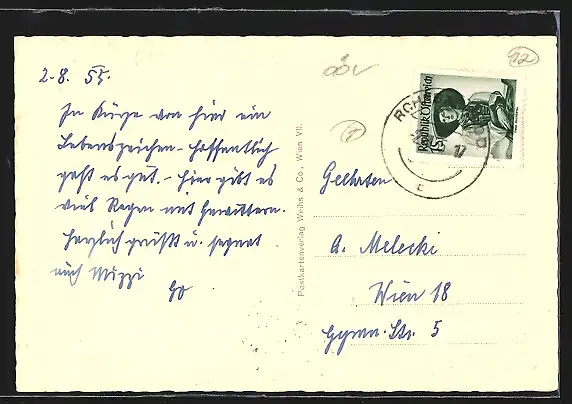 2-8. 55.
In Kürze von hier ein
Lebenszeichen - hoffentlich
geht es gut. - Hier gibt es
viel Regen mit Gewittern.
Herzlich grüßt u. segnet
auch Mizzi
Postkartenverlag Weihs & Co., Wien VII.
12
Republik Österreich
1S
17
c
Geehrten
A. Melecki
Wien 18
Gymn. Str. 5